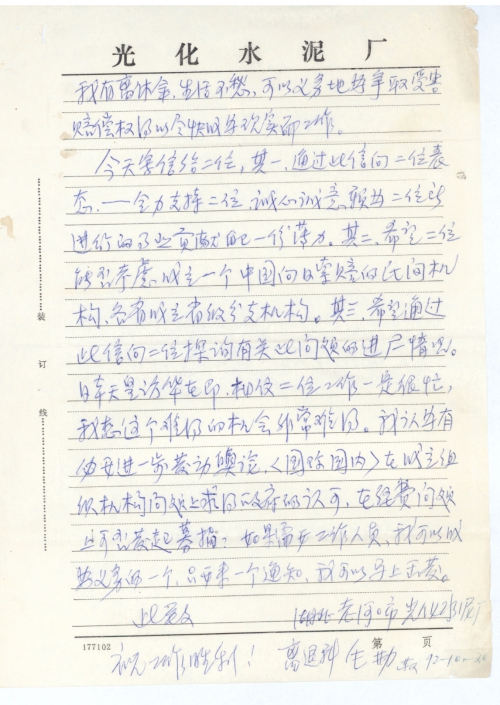 光化水泥厂
我有离休金，生活不愁，可以义务地为争取受害
赔偿权得以尽快实现而工作。
今天写信给二位，其一，通过此信向二位表
态，——全力支持二位，诚心诚意愿为二位所
进行的事业贡献自己一份薄力。其二，希望二位
能否考虑成立一个中国向日索赔的民间机
构，各省成立省级分支机构。其三，希望通过
此信向二位探询有关此问题的进展情况。
日本天皇访华在即，相信二位工作一定很忙，
我想这个难得的机会非常难得。我认为有
必要进一步发动舆论，〈国际国内〉在成立组
织机构问题上求得政府的认可，在经费问题
上可否发起募捐？如果需要工作人员，我可以成
为义务的一个，只要来一个通知，我可以马上出发。
此致
湖北老河口市光化水泥厂
祝工作胜利！
离退科
92-10-
装
订
线
177102
第 页